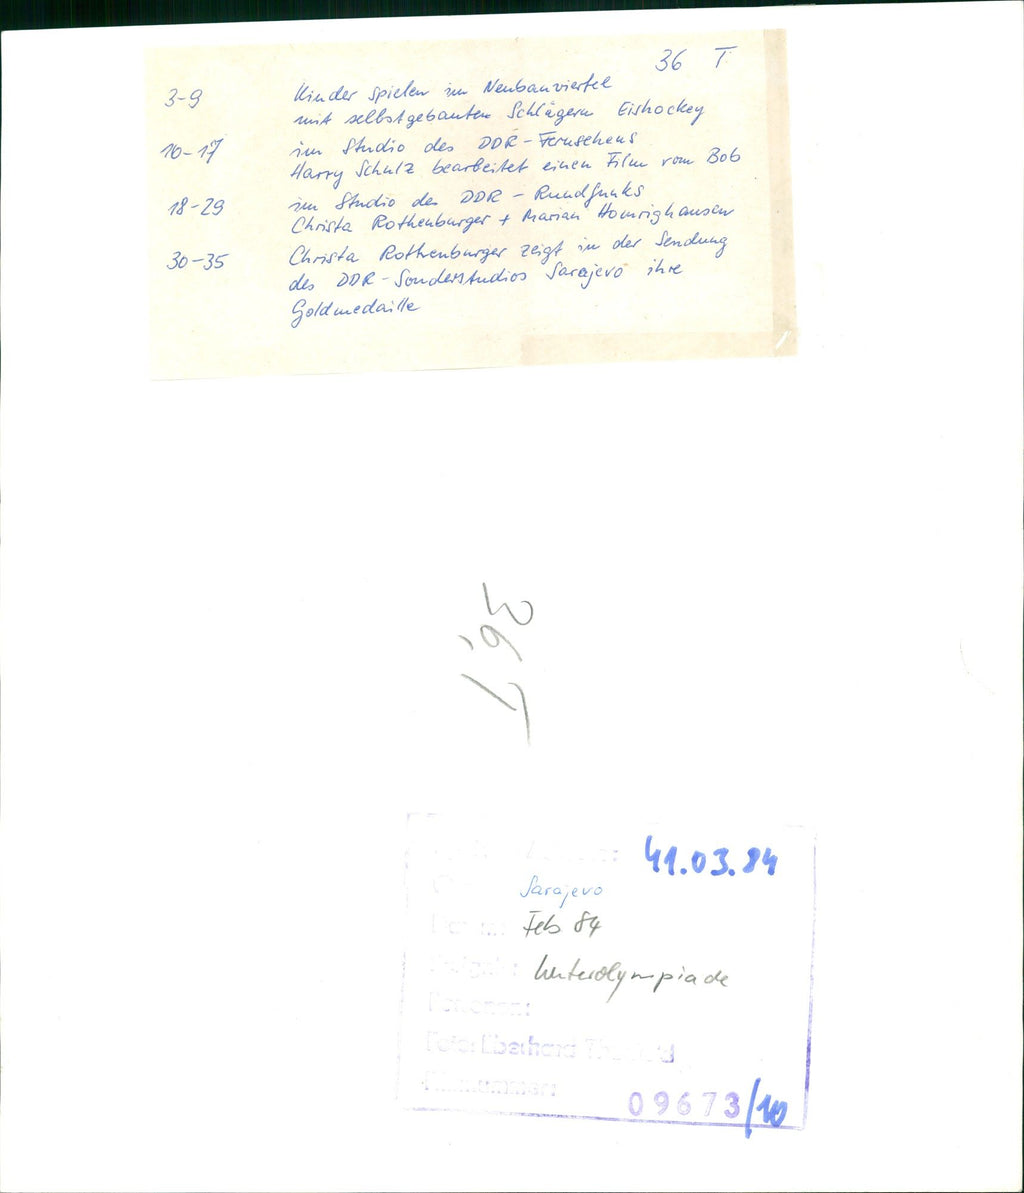 36 T
3-9 Kinder spielen im Neubauviertel
mit selbstgebauten Schlägern Eishockey
10-17 im Studio des DDR-Fernsehens
Harry Schulz bearbeitet einen Film vom Bob
18-29 im Studio des DDR-Rundfunks
Christa Rothenburger + Marian Homrighausen
30-35 Christa Rothenburger zeigt in der Sendung
des DDR-Sonderstudios Sarajevo ihre
Goldmedaille
36, T
41.03.84
Sarajevo
Feb 84
Winterolympiade
Personen:
Foto: Eberhard
Filmnummer:
09673/10